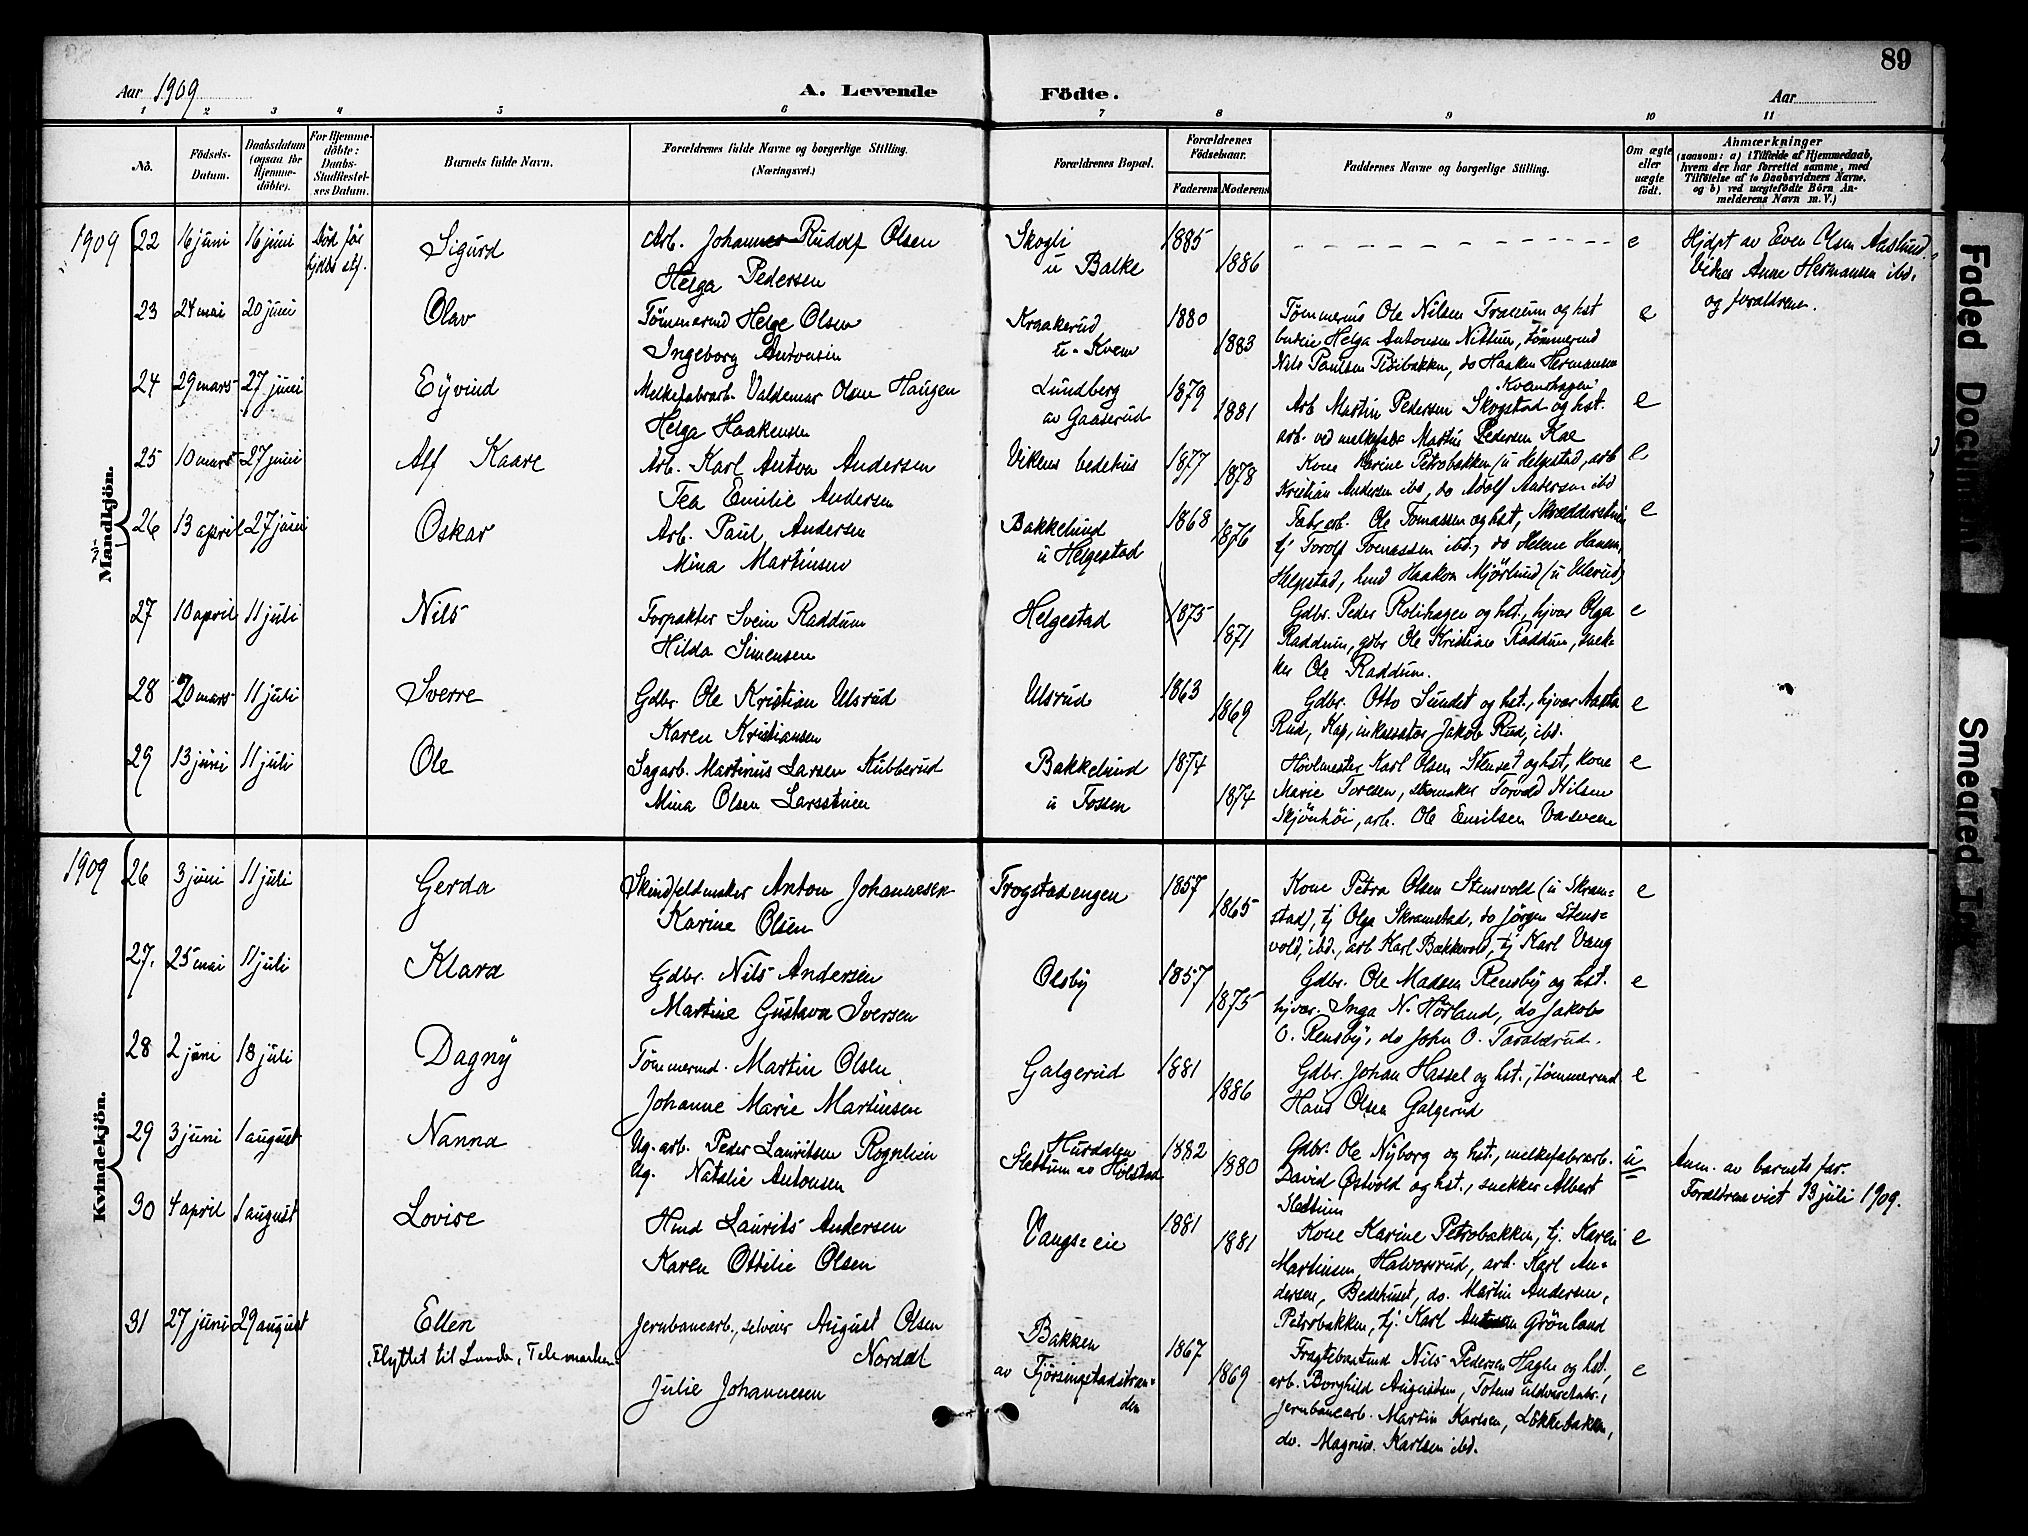 89
Aar 1909
A. Levende Födte.
Aar
1 2 3 4 5 6 7 8 9 10 11
No.
Födsels-Datum.
Daabsdatum (ogsaa for Hjemme-döbte).
For Hjemme-döbte: Daabs-Stadfæstel-ses Datum.
Barnets fulde Navn.
Forældrenes fulde Navne og borgerlige Stilling. (Næringsvei.)
Forældrenes Bopæl.
Forældrenes Födselsaar.
Faderens Moderens
Faddernes Navne og borgerlige Stilling.
Om ægte eller uægte födt.
Anmærkninger
(saasom: a) i Tilfælde af Hjemmedaab, hvem der har forrettet samme, med Tilföielse af to Daabsvidners Navne, og b) ved uægtefödte Börn Anmelderens Navn m. V.)
Mandkjön.
1909 22 16 juni 16 juni Död før Sigurd Arb. Johannes Rudolf Olsen Skogli 1885 e Hjdpt av Even Olsen Aaslund.
Helga Pedersen u Balke 1886 Vidner Anne Hermansen ibd.
og forældrene.
23 24 mai 20 juni Olav Tømmermd Helge Olsen Kraakerud 1880 Tømmermd Ole Nilsen og hst e
Ingeborg Antonsen u. Kvem 1883 Helga Antonsen Nettum, tømmermd
Nils Paulsen, do Haaken Hermansen
Kvemshagen
24 29 mars 27 juni Eyvind Melkefabrarb. Valdemar Olsen Haugen Lundberg 1879 Arb Martin Pedersen Skogstad og hst. e
Helga Haakensen av Gaaserud 1881 arb. ved melkefabr Martin Pedersen Kae
25 10 mars 27 juni Alf Kaare Arb. Karl Anton Andersen Vikens bedehus 1877 Kone Karine Petrobakken (u Helgestad, arb e
Tea Emilie Andersen 1878 Kristian Andersen ibd, do Adolf Andersen ibd
26 13 april 27 juni Oskar Arb. Paul Andersen Bakkelund 1868 Fabr.arb. Ole Tomassen og hst, e
Mina Martinsen u Helgestad 1876 tj Torolf Tomassen ibd, do Helene Hansen,
Helgestad, hmd Haakon Mjørlund (u Ullerud)
27 10 april 11 juli Nils Forpakter Svein Raddum Helgestad 1875 Gdbr. Peder Rolihagen og hst., hjvær Olga e
Hilda Simensen 1871 Raddum, gdbr Ole Kristian Raddum, snek-
ker Ole Raddum.
28 20 mars 11 juli Sverre Gdbr. Ole Kristian Ulsrud Ulsrud 1863 Gdbr. Otto Sundet og hst., hjvær e
Karen Kristiansen 1869 Rud, Kap, inkassator Jakob Rud, ibd.
29 13 juni 11 juli Ole Sagarb. Martinus Larsen Kubberud Bakkelund 1874 Høvlmester Karl Olsen Stenset og hst, kone e
Mina Olsen u Fossen 1874 Marie Toresen, skomaker Nilsen
Skjönhöi, arb. Ole Emilsen
Kvindekjön.
1909 26 3 juni 11 juli Gerda Skindfeldmaker Anton Johannesen Trogstadengen 1857 Kone Petra Olsen Stensvold (u Skram- e
Karine Olsen 1865 stad), tj Olga Skramstad, do Jörgen Stens-
vold, ibd., arb Karl Bakkevold, tj Karl Vang
27. 25 mai 11 juli Klara Gdbr. Nils Andersen Olsby 1857 Gdbr. Ole Madsen Rensby og hst. e
Martine Gustava Iversen 1875 hjvær. Inga N. Hörland, do Jakob
O. Rensby, do John O. Taralsrud.
28 2 juni 18 juli Dagny Tømmermd. Martin Olsen Galgerud 1881 Gdbr. Johan Hassel og hst., tømmermd e
Johanne Marie Martinsen 1886 Hans Olsen Galgerud
29 3 juni 1 august Nanna Ug. arb. Peder Lauritsen Rognlien Hurdalen 1882 Gdbr. Ole Nyborg og hst., melkefabrarb. u Anm. av barnets far.
Ug. Natalie Antonsen Slettum av Hölstad 1880 David Østvold og hst., snekker Albert Forældrene viet 13 juli 1909.
Slettum
30 4 april 1 august Lovise Hmd Laurits Andersen Vangs-eie 1881 Kone Karine Petrobakken, tj. Karen e
Karen Ottilie Olsen 1881 Martinsen Halvorsrud, arb. Karl An-
dersen, Bedehuset, do. Martin Andersen,
Petrobakken, tj. Karl Grönland
31 27 juni 29 august Ellen Jernbanearb., selveier August Olsen Bakken 1867 Nils Pedersen Hagen og hst, e
Flyttet til Lunde, Telemarken Nordal av Fjörsingstadstran- 1869 arb. Borghild Augustsen, Totens uldvarefabr.,
Julie Johannesen den jernbanearb. Martin Karlsen, Løkkebakken,
do. Magnus Karlsen ibd.
Faded Document
Smeared Ink